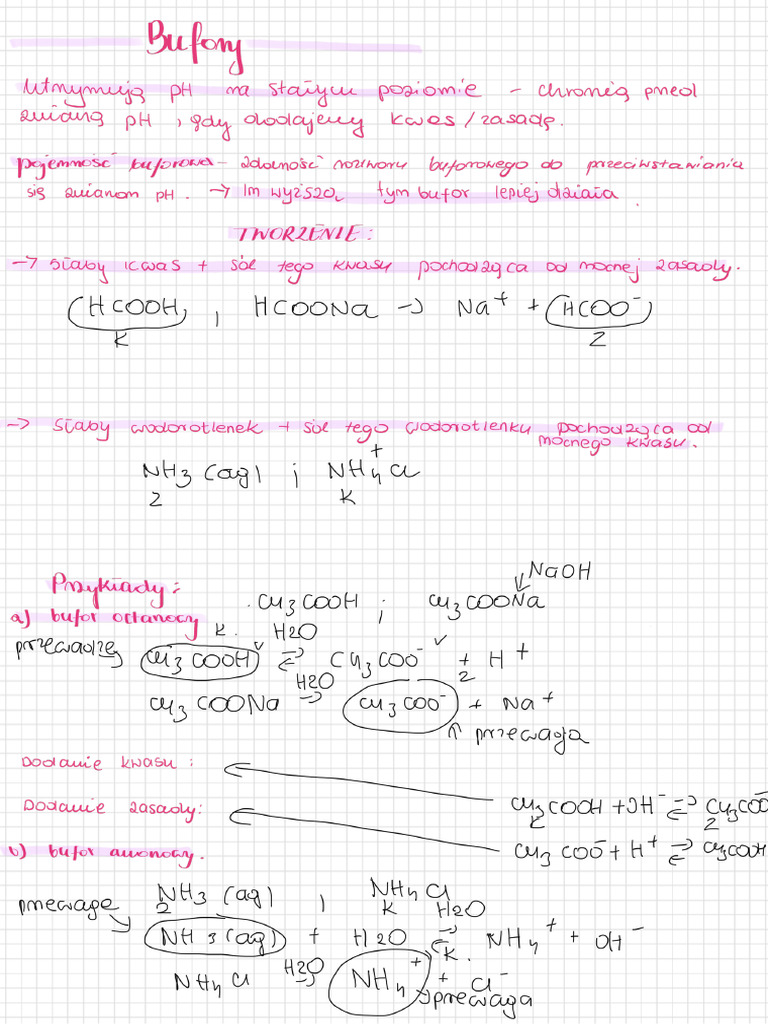 Bufory
utrzymują pH na stałym poziomie - chronią przed
zmianą pH, gdy dodajemy kwas/zasadę.
pojemność buforowa - zdolność roztworu buforowego do przeciwstawiania
się zmianom pH. → im wyższa, tym bufor lepiej działa.
TWORZENIE:
→ słaby kwas + sól tego kwasu pochodząca od mocnej zasady.
HCOOH, HCOONa → Na⁺ + HCOO⁻
K Z
→ słaby wodorotlenek + sól tego wodorotlenku pochodząca od
mocnego kwasu.
NH3(aq) ; NH4⁺Cl
Z K
Przykłady:
NaOH
a) bufor octanowy
CH3COOH ; CH3COONa
K. H2O
przewadze CH3COOH ⇌ CH3COO⁻ + H⁺
Z
H2O
CH3COONa → CH3COO⁻ + Na⁺
przewaga
Dodanie kwasu:
CH3COOH + OH⁻ ⇌ CH3COO⁻
K Z
Dodanie zasady:
CH3COO⁻ + H⁺ ⇌ CH3COOH
b) bufor amonowy.
NH3(aq), NH4Cl
Z K H2O
przewadze NH3(aq) + H2O ⇌ NH4⁺ + OH⁻
K.
H2O
NH4Cl → NH4⁺ + Cl⁻
przewaga